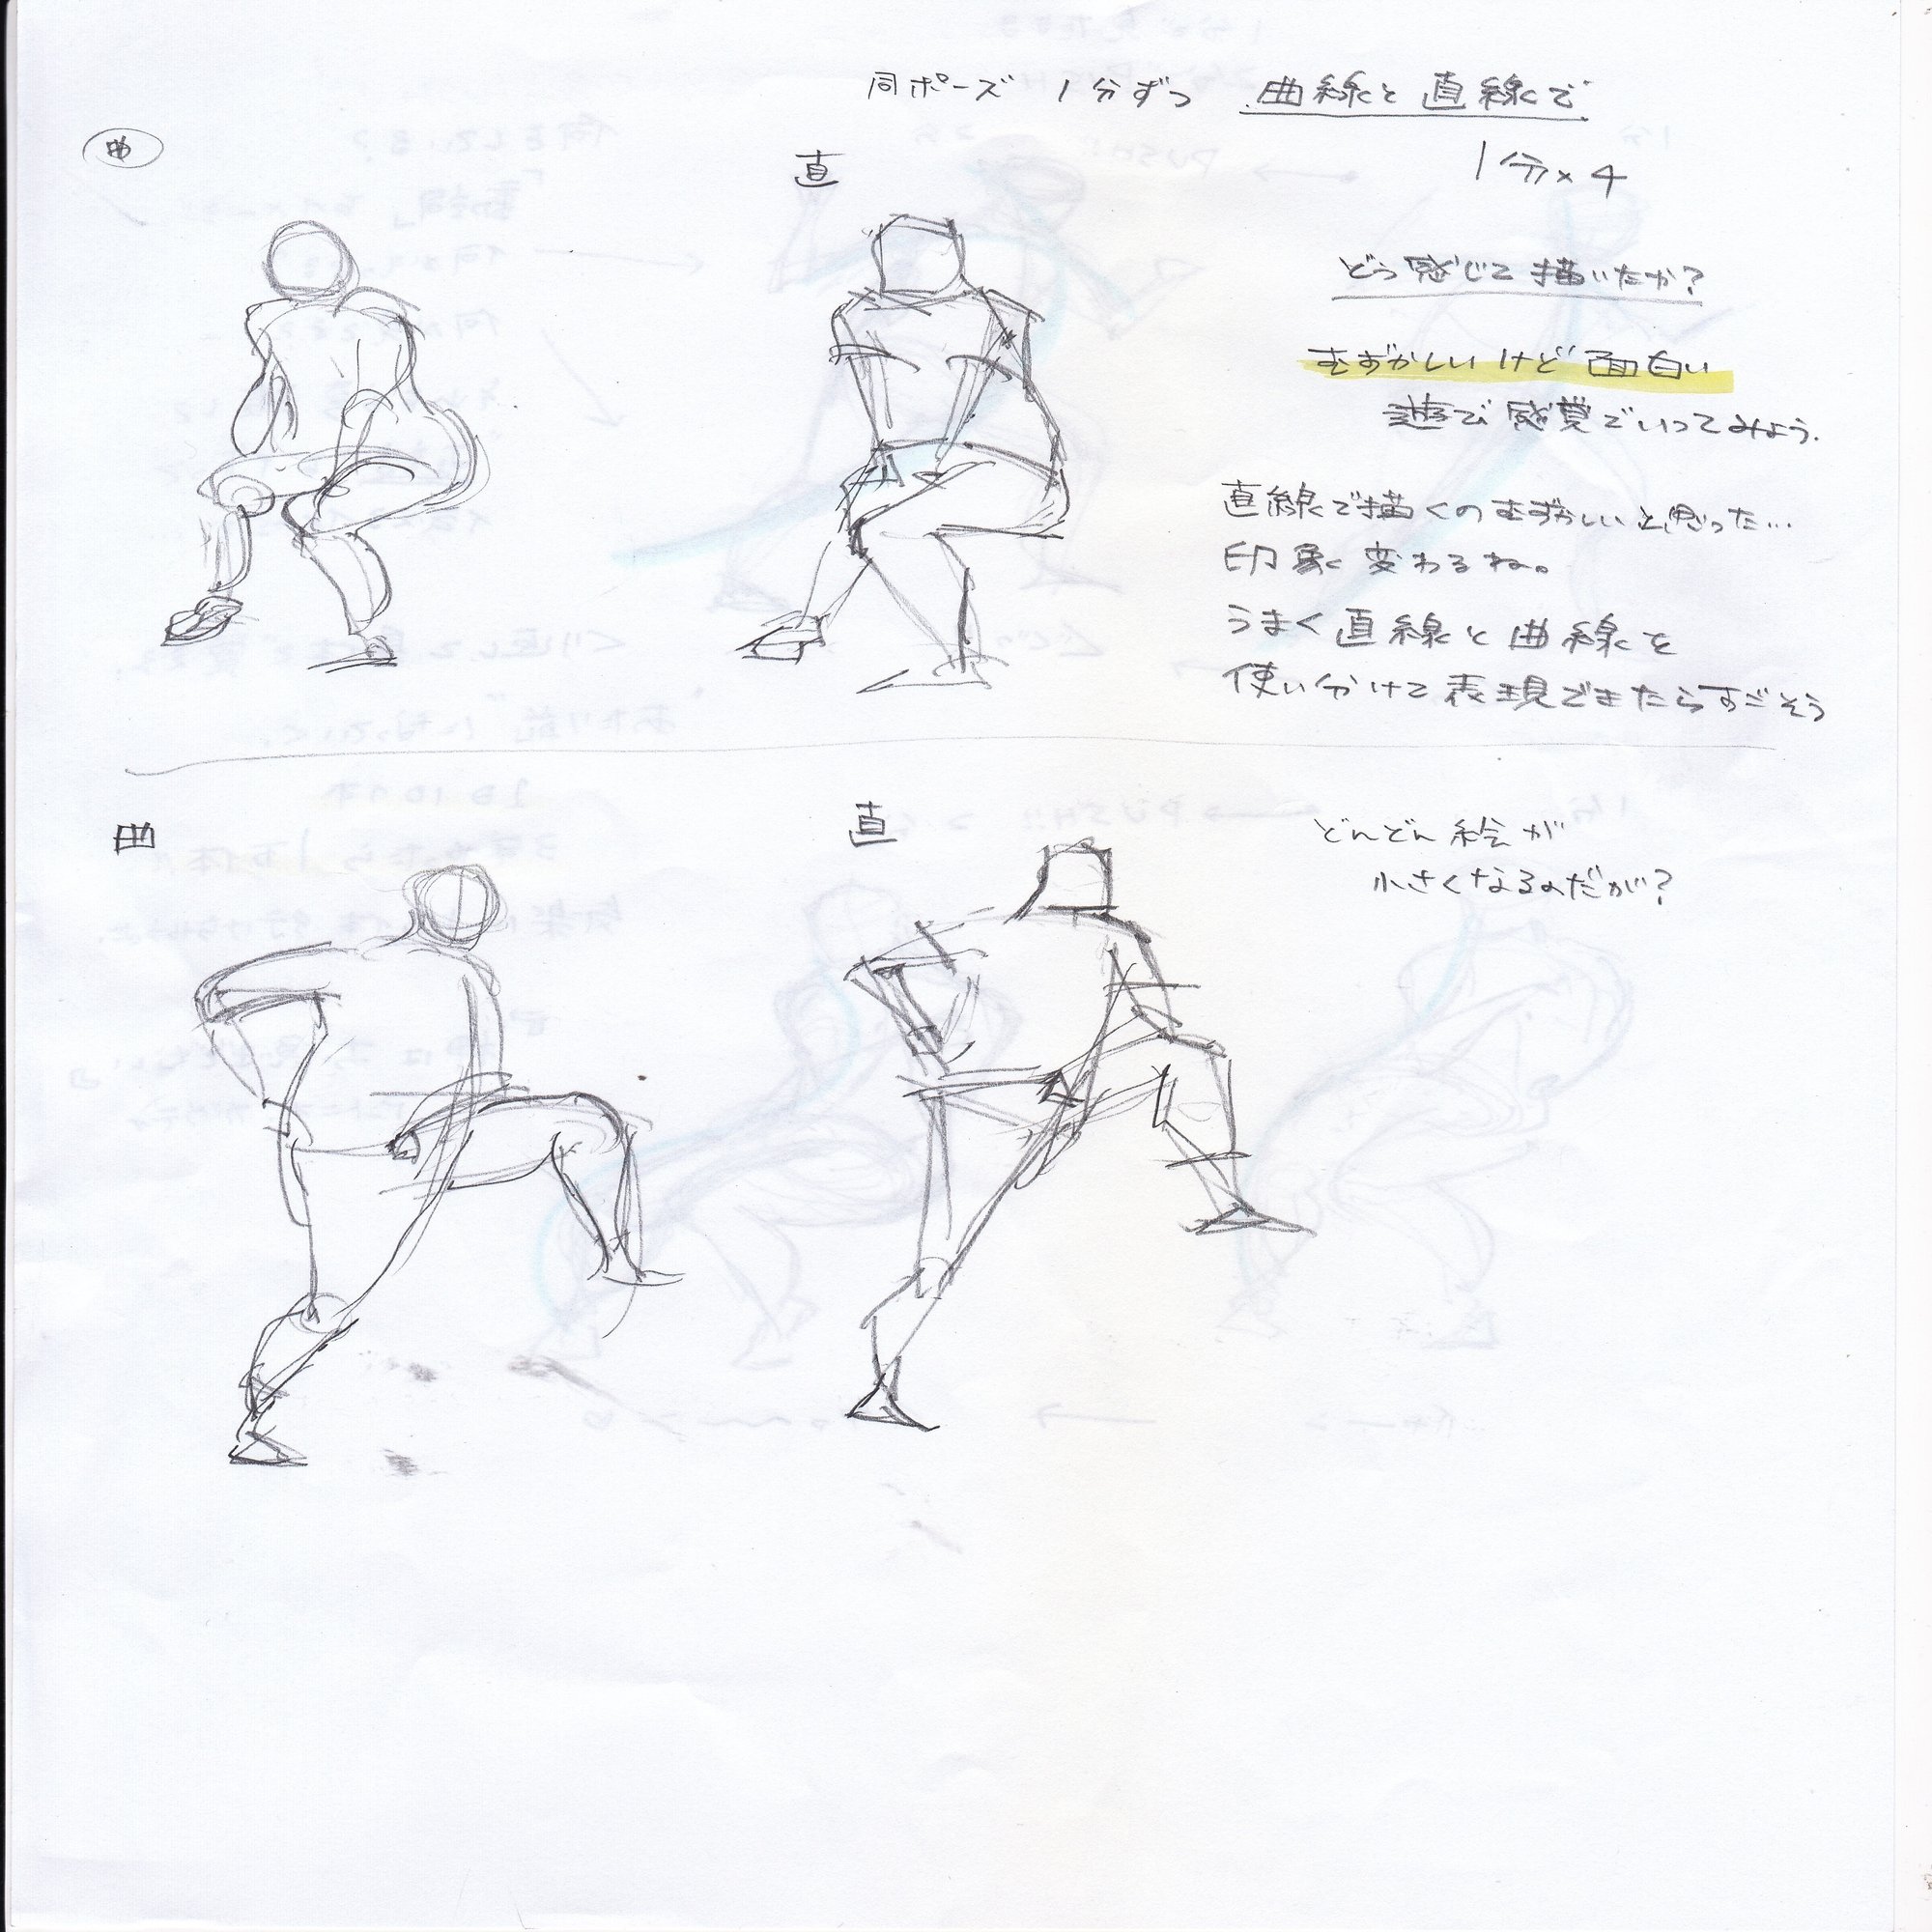 同ポーズ 1分ずつ 曲線と直線で
1分×4
曲
直
どう感じて描いたか?
むずかしいけど面白い
遊び感覚でいってみよう.
直線で描くのむずかしいと思った...
印象変わるね。
うまく直線と曲線を
使い分けて表現できたらすごそう
曲
直
どんどん絵が
小さくなるのだが?